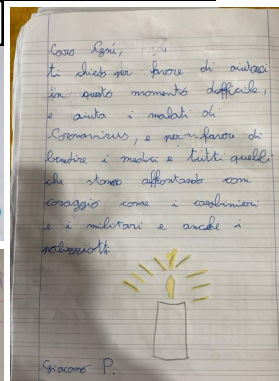 Caro Gesù,
ti chiedo per favore di aiutarci
in questo momento difficile,
e aiuta i malati di
Coronavirus, e per favore di
benedire i medici e tutti quelli
che stanno affrontando con
coraggio come i carabinieri
e i militari e anche i
poliziotti
Giacomo P.